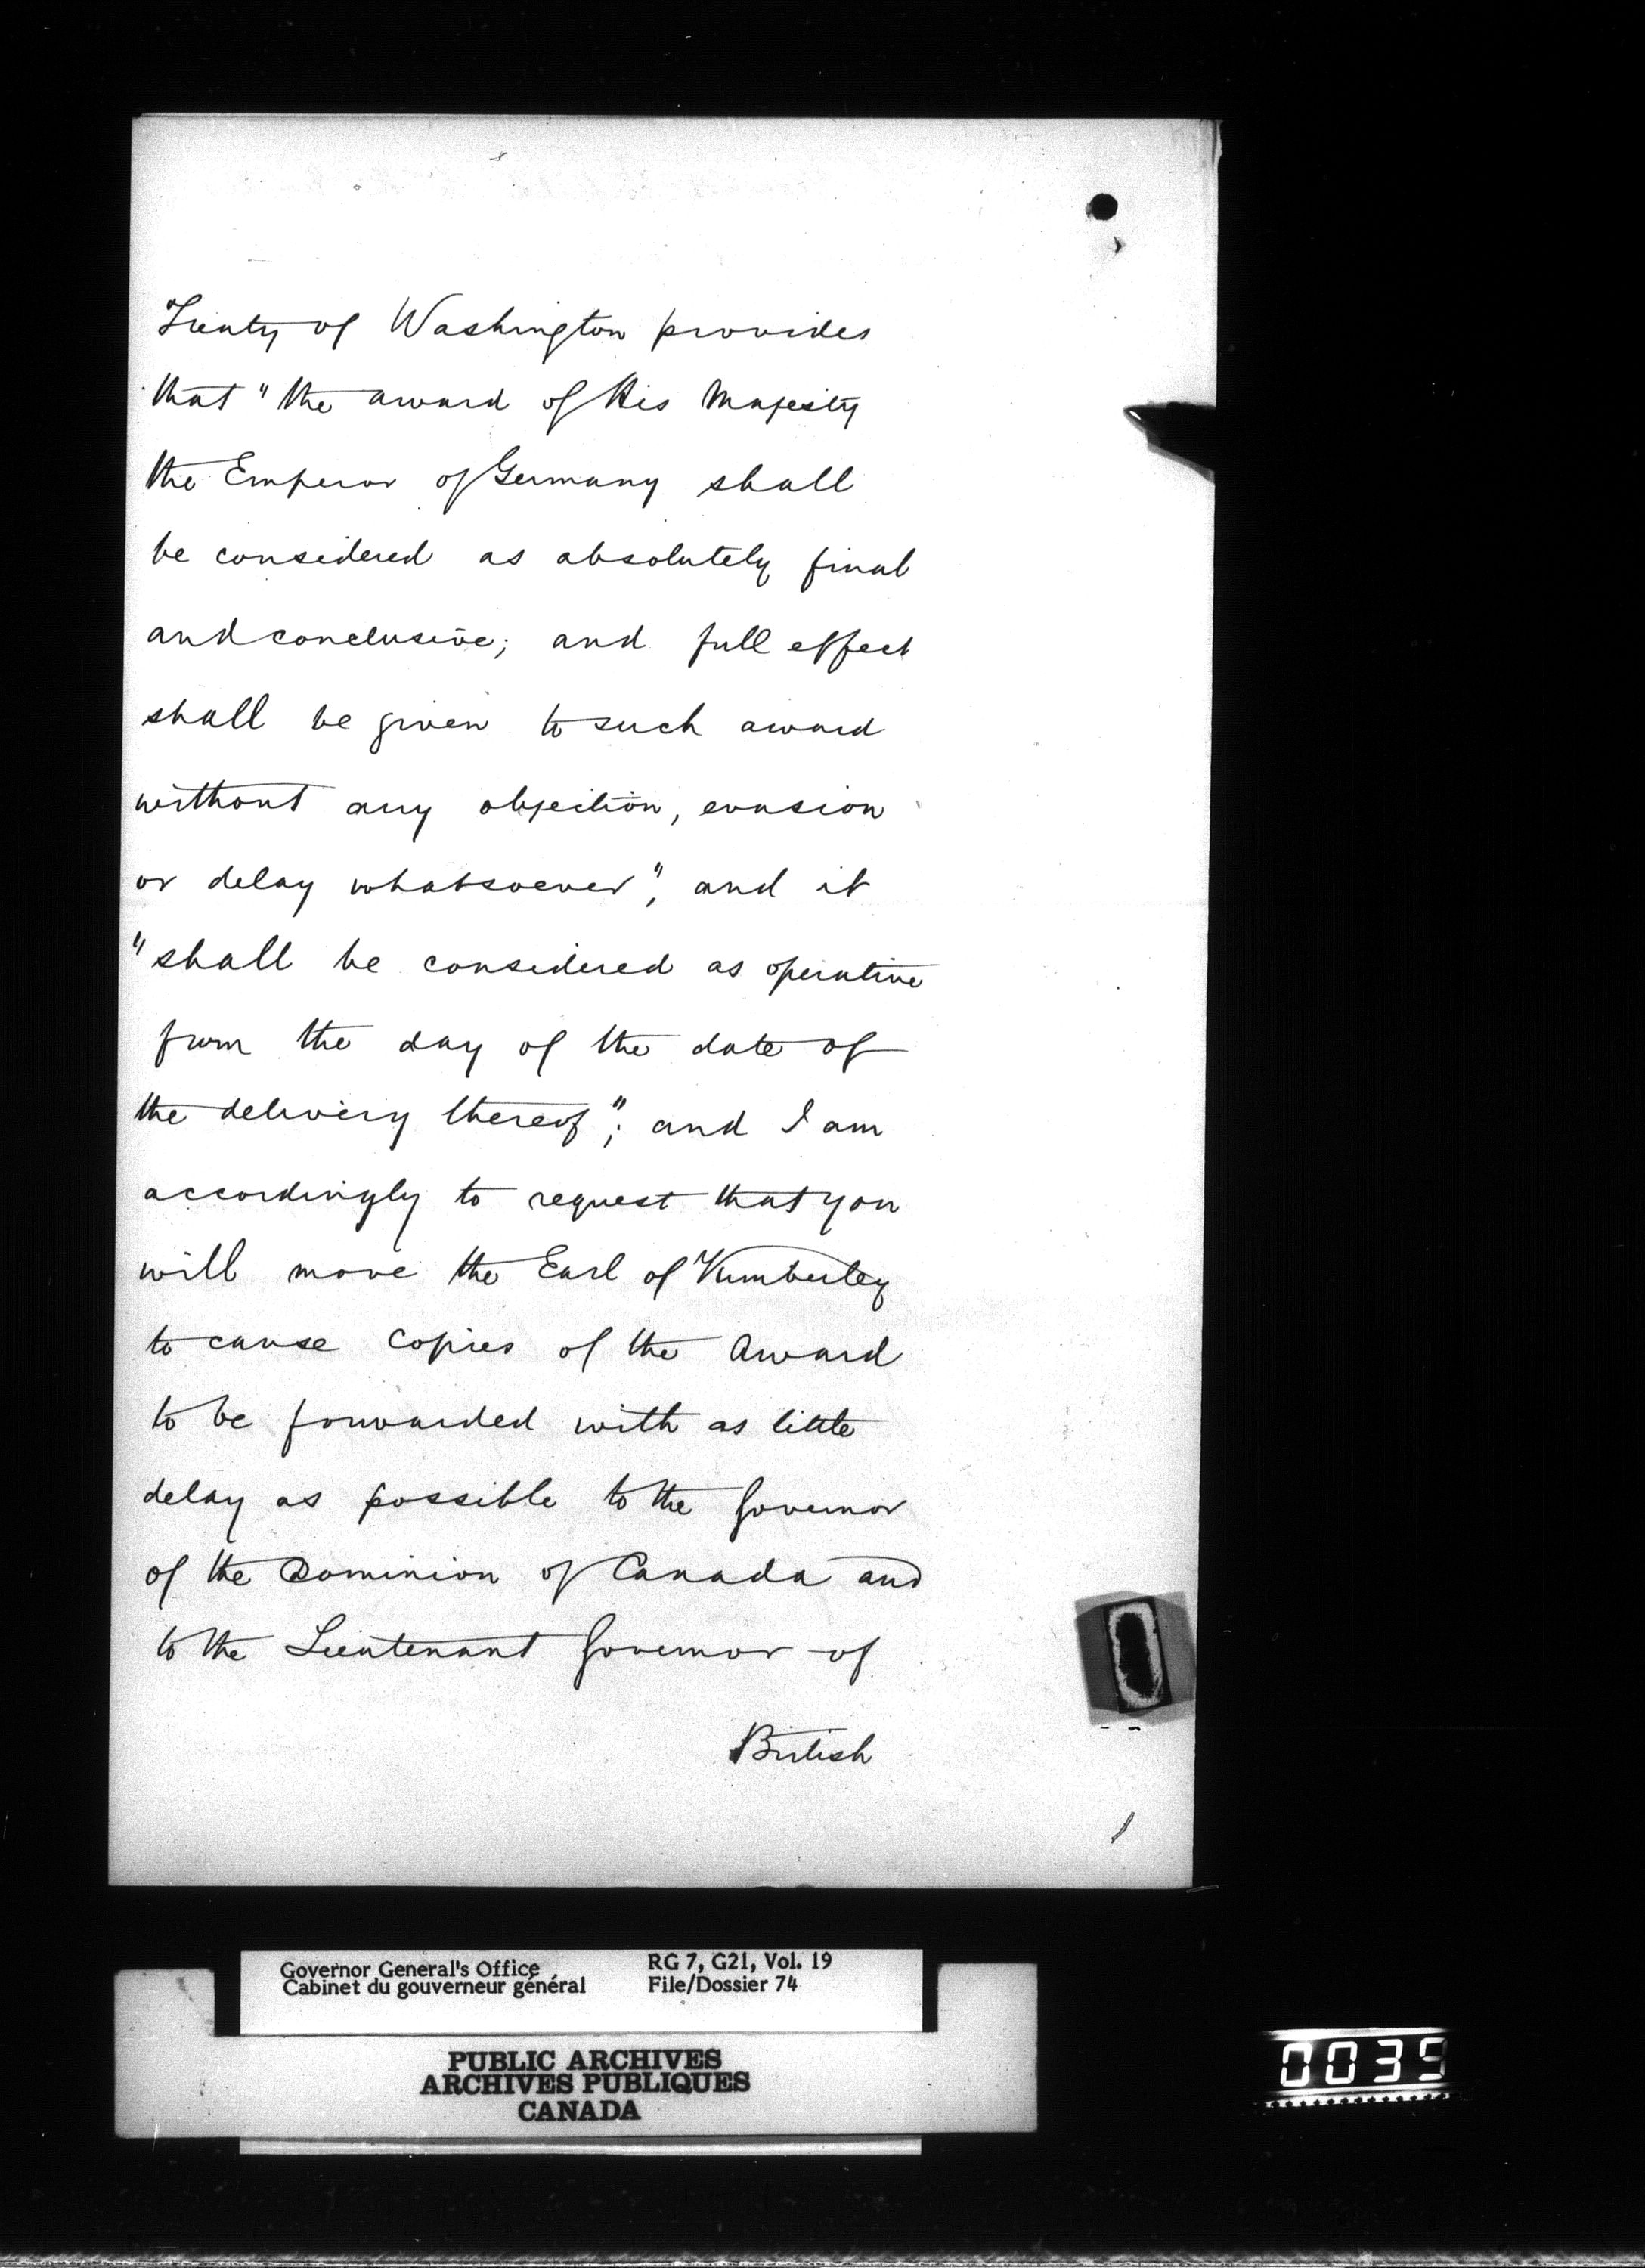 Treaty of Washington provides
that "the award of His Majesty
the Emperor of Germany shall
be considered as absolutely final
and conclusive; and full effect
shall be given to such award
without any objection, evasion
or delay whatsoever", and it
"shall be considered as operative
from the day of the date of
the delivery thereof"; and I am
accordingly to request that you
will move the Earl of Kimberley
to cause copies of the Award
to be forwarded with as little
delay as possible to the Governor
of the Dominion of Canada and
to the Lieutenant Governor of
British
Governor General's Office
Cabinet du gouverneur général
RG 7, G21, Vol. 19
File/Dossier 74
PUBLIC ARCHIVES
ARCHIVES PUBLIQUES
CANADA
0039